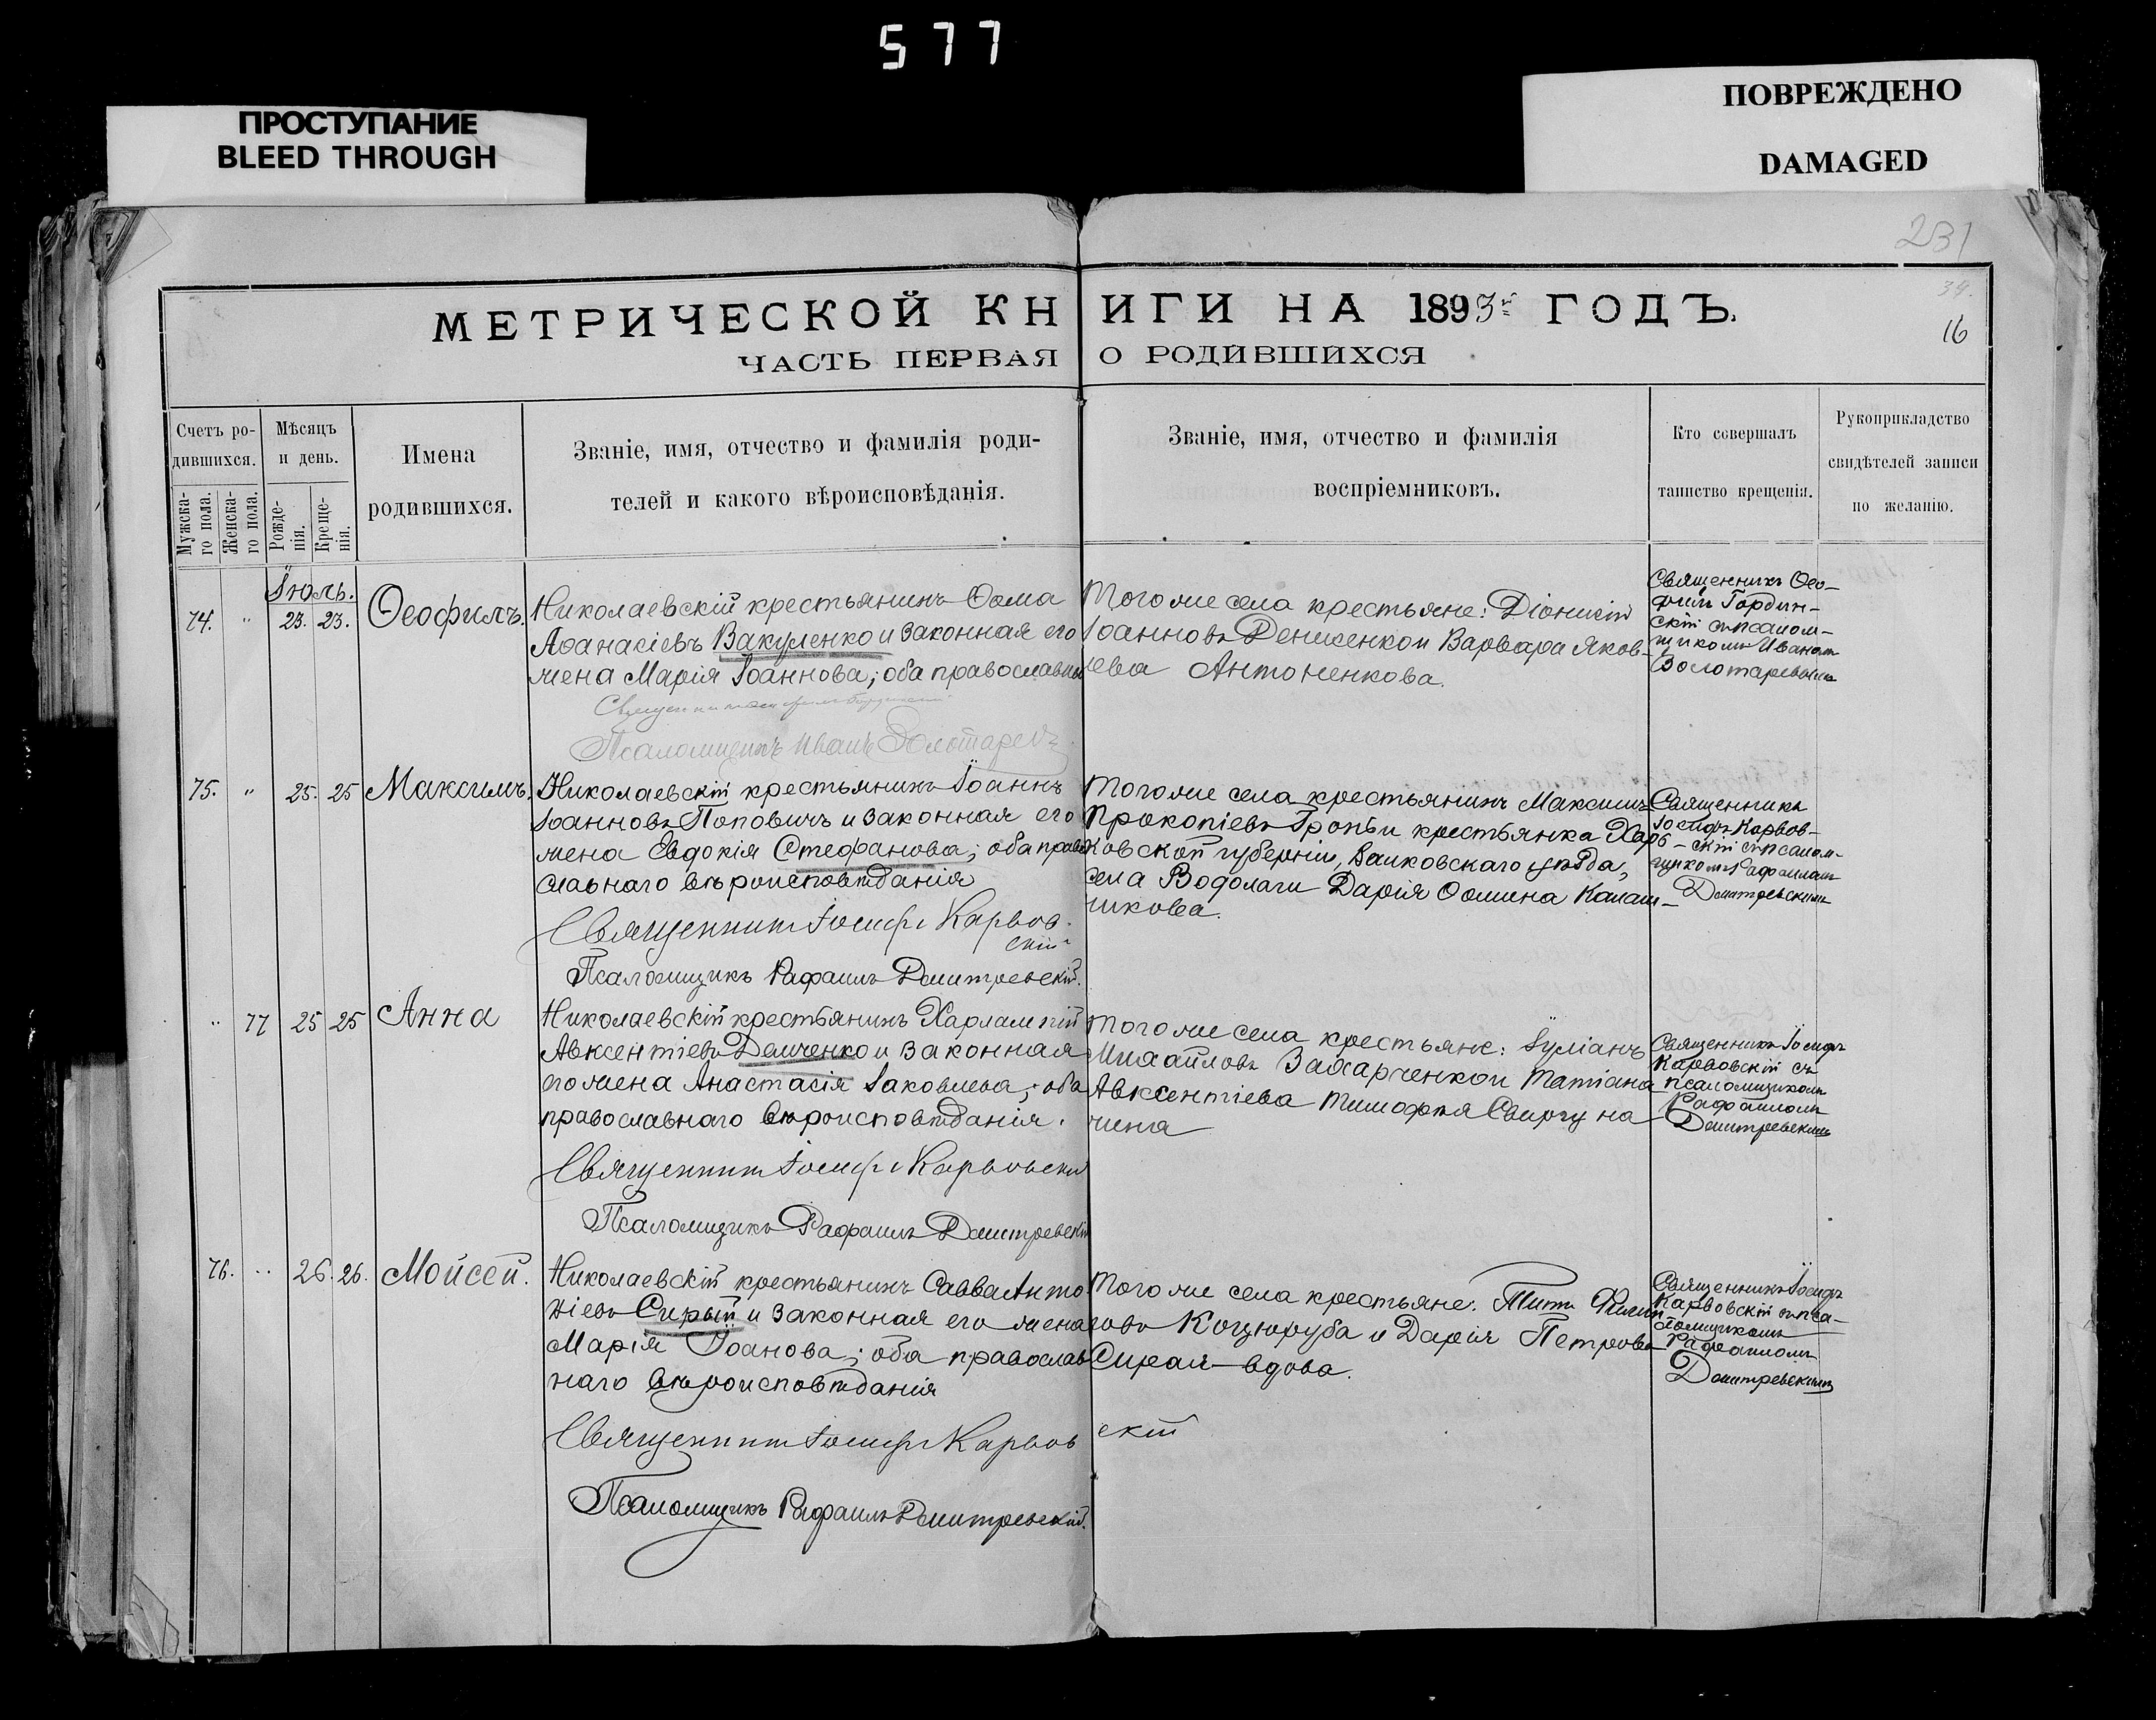 577
ПРОСТУПАНИЕ
BLEED THROUGH
ПОВРЕЖДЕНО
DAMAGED
231
МЕТРИЧЕСКОЙ КНИГИ НА 1893й ГОДЪ.
34.
16
ЧАСТЬ ПЕРВАЯ О РОДИВШИХСЯ
Счетъ ро-
дившихся.
Мужска-
го пола.
Женска-
го пола.
Мѣсяцъ
и день.
Рожде-
нія.
Креще-
нія.
Имена
родившихся.
Званіе, имя, отчество и фамилія роди-
телей и какого вѣроисповѣданія.
Званіе, имя, отчество и фамилія
воспріемниковъ.
Кто совершалъ
таинство крещенія.
Рукоприкладство
свидѣтелей записи
по желанію.
Іюль.
74. " 23. 23. Ѳеофилъ.
Николаевскій крестьянинъ Ѳома
Аѳанасіевъ Вакуленко и законная его
жена Марія Іоаннова; оба православны
Псаломщикъ Иванъ Золотаревъ
Того же села крестьяне: Діонисій
Іоанновъ Денисенко и Варвара Яков-
лева Антоненкова.
Священникъ Ѳео-
филъ Гордин-
скій съ псалом-
щикомъ Иваномъ
Золотаревымъ
75. " 25. 25 Максимъ.
Николаевскій крестьянинъ Іоаннъ
Іоанновъ Поповичъ и законная его
жена Евдокія Стефанова; оба право
славнаго вѣроисповѣданія
Священникъ Іосифъ Карвов-
скій
Псаломщикъ Рафаилъ Дмитревскій.
Того же села крестьянинъ Максимъ
Прокопіевъ Гронь и крестьянка Харь-
ковской губерніи, Валковскаго уѣзда,
села Водолаги Дарія Ѳомина Калаш-
никова.
Священникъ
Іосифъ Карвов-
скій съ псалом-
щикомъ Рафаиломъ
Дмитревскимъ
" 77 25 25 Анна
Николаевскій крестьянинъ Харлампій
Авксентіевъ Демченко и законная
его жена Анастасія Іаковлева; оба
православнаго вѣроисповѣданія.
Священникъ Іосифъ Карвовскій
Псаломщикъ Рафаилъ Дмитревскій
Того же села крестьяне: Іуліанъ
Михайловъ Захарченко и Татіана
Авксентіева Тимофея Свиргуна
жена
Священникъ Іосифъ
Карвовскій съ
псаломщикомъ
Рафаиломъ
Дмитревскимъ
76. " 26. 26. Мойсей.
Николаевскій крестьянинъ Савва Анто
ніевъ Сирый и законная его жена
Марія Іоанова; оба православ
наго вѣроисповѣданія
Священникъ Іосифъ Карвовскій
Псаломщикъ Рафаилъ Дмитревскій.
Того же села крестьяне. Титъ Филип
овъ Коцюруба и Дарія Петрова
Сирая - вдова.
Священникъ Іосифъ
Карвовскій съ пса-
ломщикомъ
Рафаиломъ
Дмитревскимъ